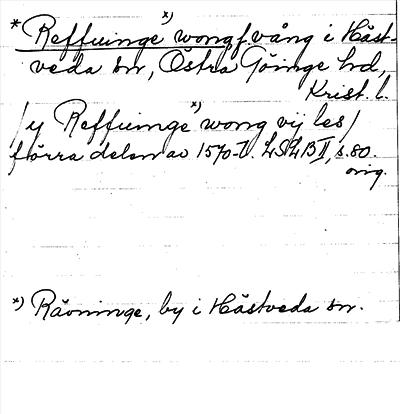 * Reffuinge x) wong, f. vång i Häst-
veda sn, Östra Göinge hd,
Krist. l.
/y Reffuinge x) wong vij les/
förra delen av 1570-t. LSLB II, s. 80.
orig.
x) Rävninge, by i Hästveda sn.